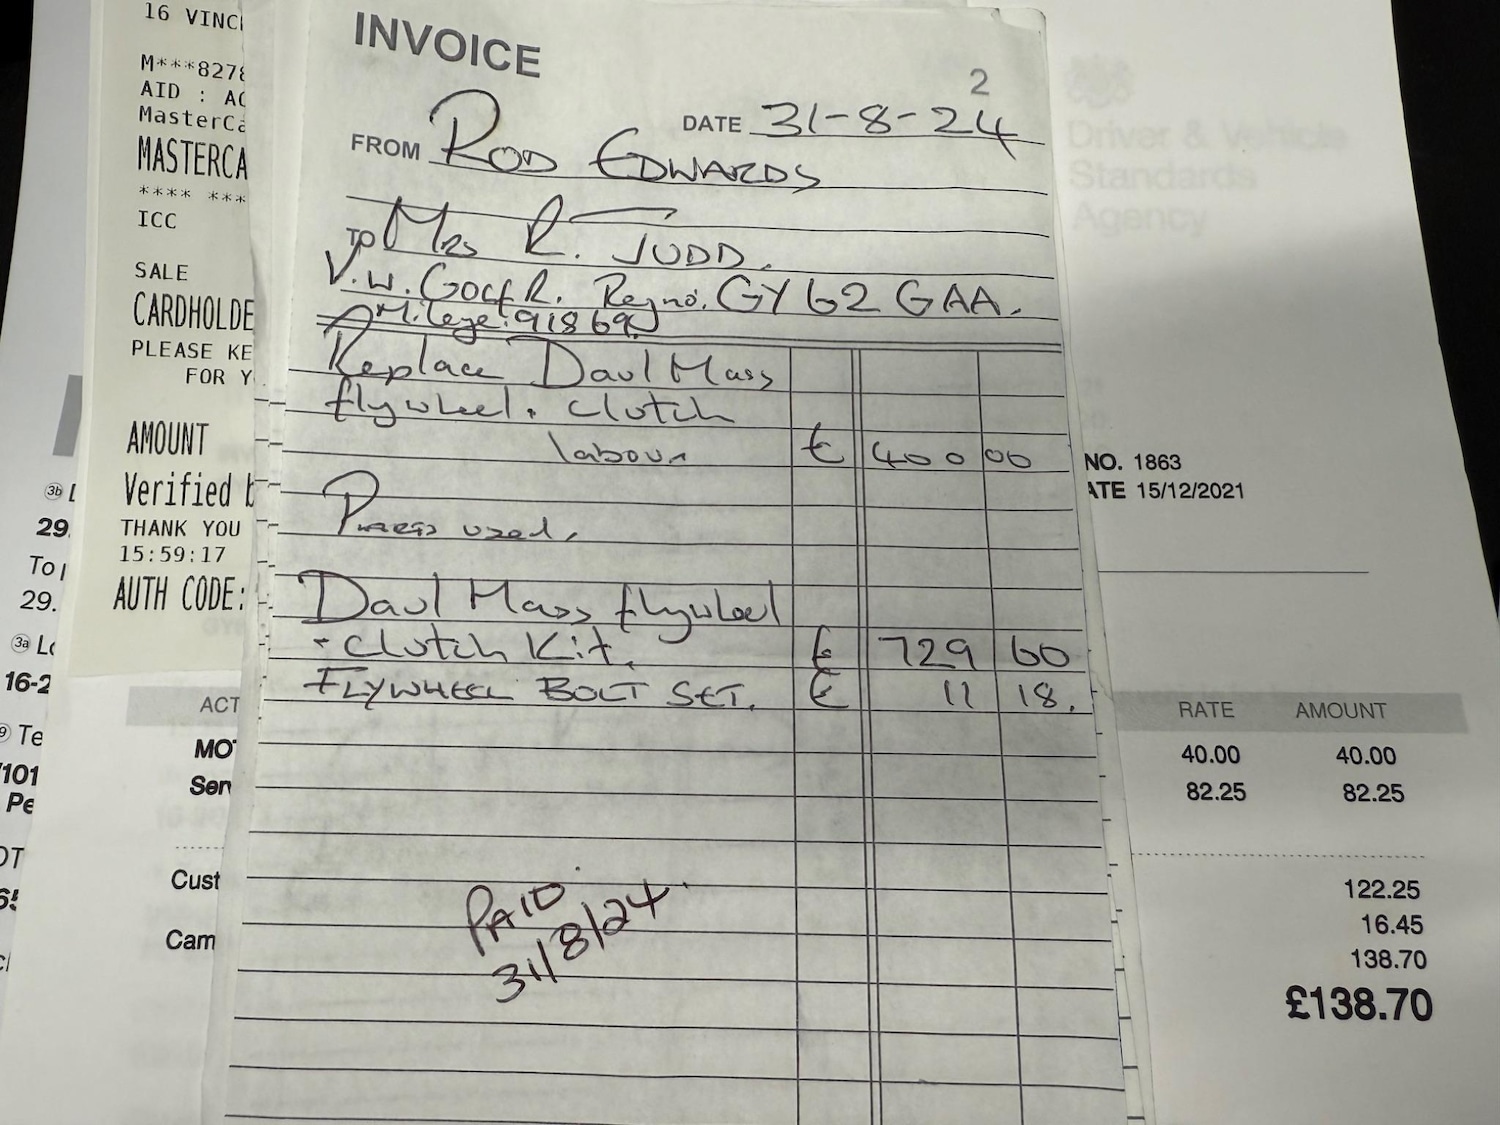 16 VINC
M***8278
AID : A0
MasterCa
MASTERCA
**** ***
ICC
SALE
CARDHOLDE
PLEASE KE
FOR Y
AMOUNT
Verified b
THANK YOU
15:59:17
AUTH CODE:
INVOICE
2
DATE 31-8-24
FROM ROD EDWARDS
TO Mrs R. JUDD.
V.W. Golf R. Regno. GY62 GAA.
Mileage. 91869
Replace Daul Mass
flywheel. clutch
labour £ 400 00
Parts used.
Daul Mass flywheel
- Clutch Kit. £ 729 60
FLYWHEEL BOLT SET. £ 11 18.
PAID
31/8/24
Driver & Vehicle
Standards
Agency
NO. 1863
ATE 15/12/2021
RATE AMOUNT
40.00 40.00
82.25 82.25
122.25
16.45
138.70
£138.70
3b
29
To
29.
3a Lo
16-2
9 Te
/101
Pe
OT
ACT
MOT
Serv
Cust
Cam